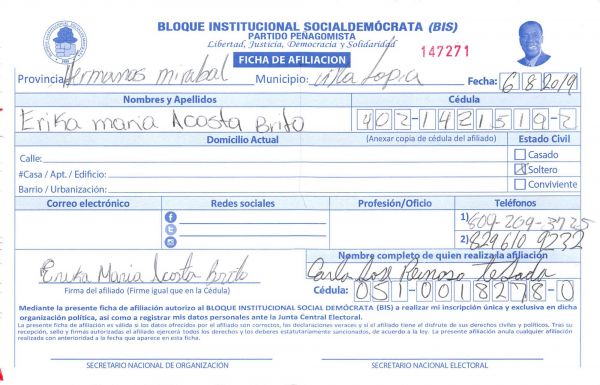 BLOQUE INSTITUCIONAL SOCIALDEMÓCRATA (BIS)
PARTIDO PEÑAGOMISTA
Libertad, Justicia, Democracia y Solidaridad
FICHA DE AFILIACION
147271
Provincia Hermanas mirabal Municipio: Villa Tapia Fecha: 6 8 2019
Nombres y Apellidos Cédula
Erika maria Acosta Brito 402-1421519-2
Domicilio Actual (Anexar copia de cédula del afiliado) Estado Civil
Calle: Casado
#Casa / Apt. / Edificio: X Soltero
Barrio / Urbanización: Conviviente
Correo electrónico Redes sociales Profesión/Oficio Teléfonos
1) 809-209-3725
2) 829 610 9232
Nombre completo de quien realiza la afiliación
Erika Maria Acosta Brito Carlos Jose Reinoso
Firma del afiliado (Firme igual que en la Cédula) Cédula: 051-0018278-0
Mediante la presente ficha de afiliación autorizo al BLOQUE INSTITUCIONAL SOCIAL DEMÓCRATA (BIS) a realizar mi inscripción única y exclusiva en dicha
organización política, así como a registrar mis datos personales ante la Junta Central Electoral.
La presente ficha de afiliación es válida si los datos ofrecidos por el afiliado son correctos, las declaraciones veraces y si el afiliado tiene el disfrute de sus derechos civiles y políticos. Tras su
recepción, sello y firmas autorizadas el afiliado ejercerá todos los derechos y los deberes estatutariamente sancionados, de acuerdo a la ley. La presente afiliación anula cualquier afiliación
realizada con anterioridad a la fecha que aparece en esta ficha.
SECRETARIO NACIONAL DE ORGANIZACIÓN SECRETARIO NACIONAL ELECTORAL